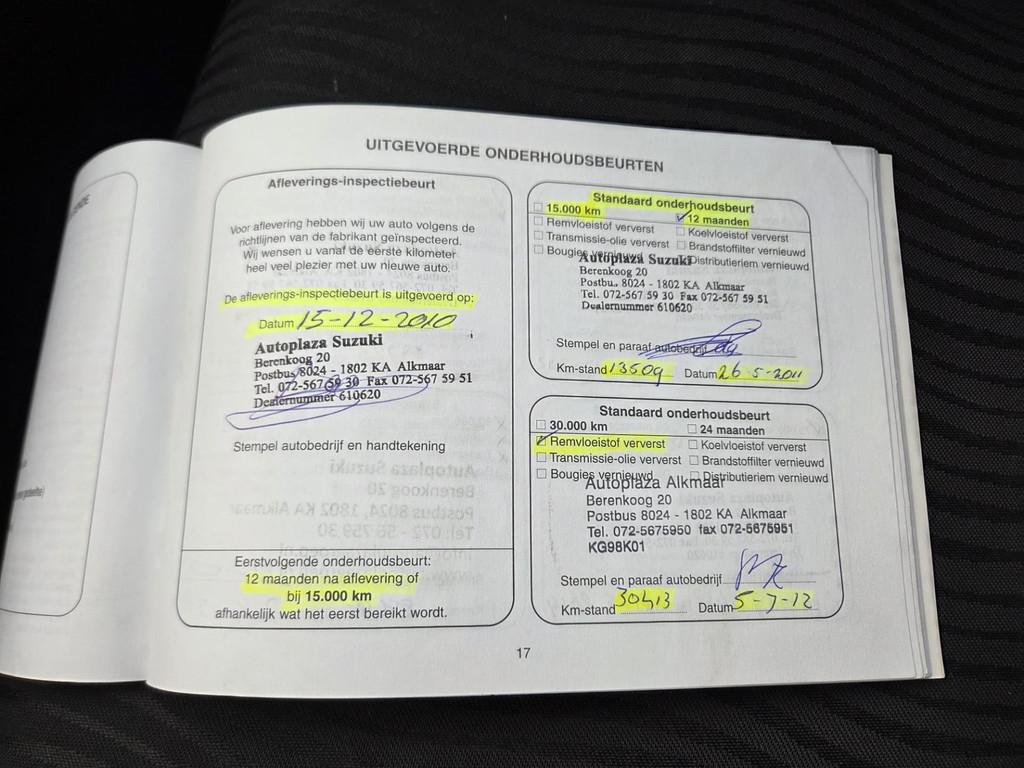 UITGEVOERDE ONDERHOUDSBEURTEN
Afleverings-inspectiebeurt
Voor aflevering hebben wij uw auto volgens de
richtlijnen van de fabrikant geïnspecteerd.
Wij wensen u vanaf de eerste kilometer
heel veel plezier met uw nieuwe auto.
De afleverings-inspectiebeurt is uitgevoerd op:
Datum 15-12-2010
Autoplaza Suzuki
Berenkoog 20
Postbus 8024 - 1802 KA Alkmaar
Tel. 072-567 59 30 Fax 072-567 59 51
Dealernummer 610620
Stempel autobedrijf en handtekening
Eerstvolgende onderhoudsbeurt:
12 maanden na aflevering of
bij 15.000 km
afhankelijk wat het eerst bereikt wordt.
Standaard onderhoudsbeurt
15.000 km 12 maanden
Remvloeistof ververst Koelvloeistof ververst
Transmissie-olie ververst Brandstoffilter vernieuwd
Bougies vernieuwd Distributieriem vernieuwd
Autoplaza Suzuki
Berenkoog 20
Postbu. 8024 - 1802 KA Alkmaar
Tel. 072-567 59 30 Fax 072-567 59 51
Dealernummer 610620
Stempel en paraaf autobedrijf
Km-stand 13509 Datum 26-5-2011
Standaard onderhoudsbeurt
30.000 km 24 maanden
Remvloeistof ververst Koelvloeistof ververst
Transmissie-olie ververst Brandstoffilter vernieuwd
Bougies vernieuwd Distributieriem vernieuwd
Autoplaza Alkmaar
Berenkoog 20
Postbus 8024 - 1802 KA Alkmaar
Tel. 072-5675950 fax 072-5675951
KG98K01
Stempel en paraaf autobedrijf
Km-stand 30413 Datum 5-7-12
17